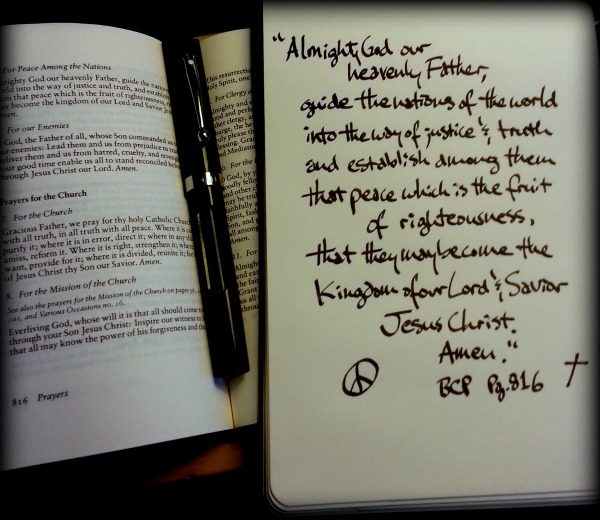 For Peace Among the Nations
Almighty God our heavenly Father, guide the nations
world into the way of justice and truth, and establish
them that peace which is the fruit of righteousness,
may become the kingdom of our Lord and Savior
Amen.
For our Enemies
God, the Father of all, whose Son commanded us
enemies: Lead them and us from prejudice to
deliver them and us from hatred, cruelty, and revenge
your good time enable us all to stand reconciled before
through Jesus Christ our Lord. Amen.
Prayers for the Church
7. For the Church
Gracious Father, we pray for thy holy Catholic Church
with all truth, in all truth with all peace. Where it is
purify it; where it is in error, direct it; where in any thi
amiss, reform it. Where it is right, strengthen it; where
want, provide for it; where it is divided, reunite it; for
of Jesus Christ thy Son our Savior. Amen.
8. For the Mission of the Church
See also the prayers for the Mission of the Church on pages
and Various Occasions no. 16.
Everliving God, whose will it is that all should come to
through your Son Jesus Christ: Inspire our witness to
that all may know the power of his forgiveness and the
816 Prayers
this resurrection
Holy Spirit, one
For Clergy
"Almighty God our
heavenly Father,
guide the nations of the world
into the way of justice & truth
and establish among them
that peace which is the fruit
of righteousness,
that they may become the
Kingdom of our Lord & Savior
Jesus Christ.
Amen."
BCP Pg. 816